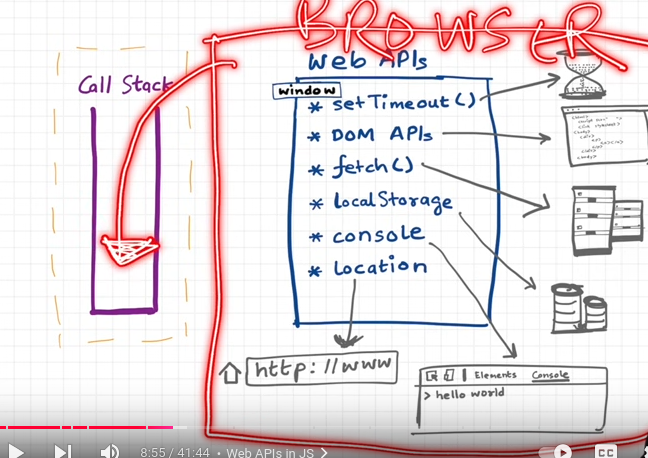 BROWSER
Web APIs
Call Stack
window
* setTimeout()
* DOM APIs
* fetch()
* localStorage
* console
* location
http://www
Elements Console
> hello world
8:55 / 41:44 • Web APIs in JS >
CC